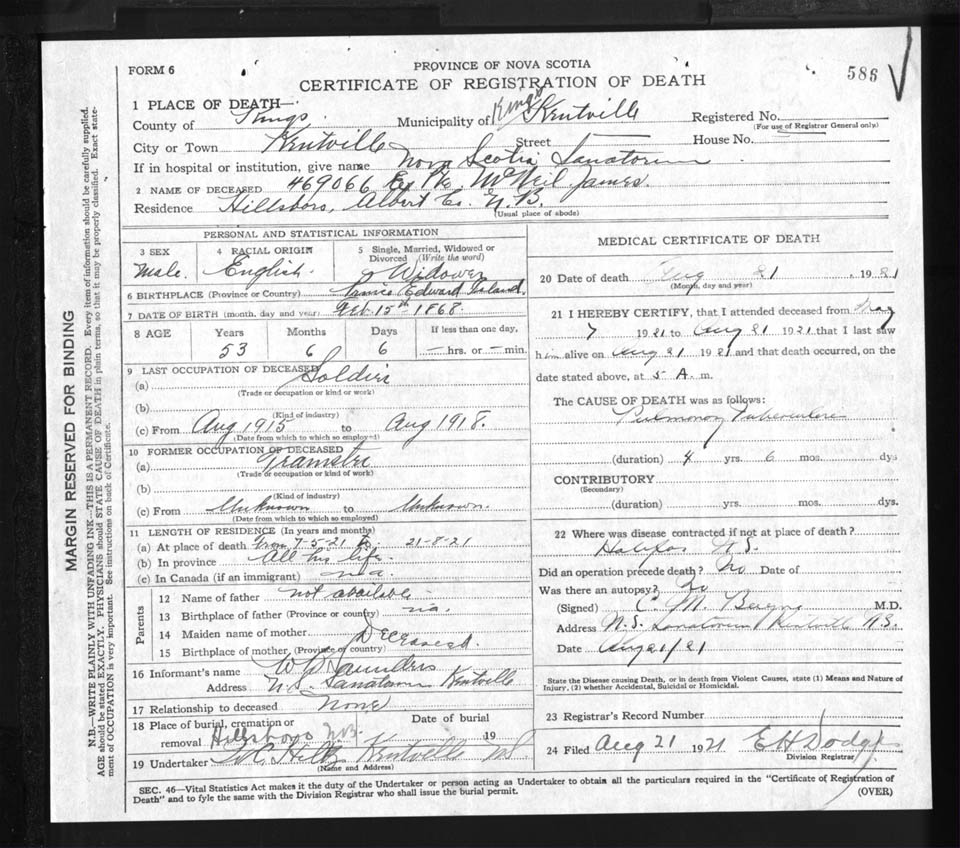 FORM 6
PROVINCE OF NOVA SCOTIA
CERTIFICATE OF REGISTRATION OF DEATH
586
1 PLACE OF DEATH—
County of Kings. Municipality of Kings Kentville Registered No.
(For use of Registrar General only)
City or Town Kentville Street House No.
If in hospital or institution, give name Nova Scotia Sanatorium
2 NAME OF DECEASED 469066 Ex Pte McNeil James.
Residence Hillsboro, Albert Co. N.B.
(Usual place of abode)
PERSONAL AND STATISTICAL INFORMATION
3 SEX Male.
4 RACIAL ORIGIN English.
5 Single, Married, Widowed or Divorced (Write the word) Widower
6 BIRTHPLACE (Province or Country) Prince Edward Island.
7 DATE OF BIRTH (month, day and year) Feb. 15th 1868.
8 AGE Years Months Days If less than one day,
53 6 6 — hrs. or — min.
9 LAST OCCUPATION OF DECEASED
(a) Soldier
(Trade or occupation or kind or work)
(b)
(Kind of industry)
(c) From Aug 1915 to Aug 1918.
(Date from which to which so employed)
10 FORMER OCCUPATION OF DECEASED
(a) Teamster
(Trade or occupation or kind of work)
(b)
(Kind of industry)
(c) From Unknown to Unknown.
(Date from which to which so employed)
11 LENGTH OF RESIDENCE (In years and months)
(a) At place of death From 7-5-21 to 21-8-21
(b) In province All his life.
(c) In Canada (if an immigrant) n.a.
Parents
12 Name of father not available
13 Birthplace of father (Province or country) n.a.
14 Maiden name of mother Deceased.
15 Birthplace of mother (Province or country)
16 Informant's name W Saunders
Address N.S. Sanatorium Kentville
17 Relationship to deceased None
18 Place of burial, cremation or removal Hillsboro N.B. Date of burial 19
19 Undertaker Kentville NS
(Name and Address)
MEDICAL CERTIFICATE OF DEATH
20 Date of death Aug 21, 1921
(Month, day and year)
21 I HEREBY CERTIFY, that I attended deceased from May
7 1921 to Aug 21 1921 that I last saw
him alive on Aug 21 1921 and that death occurred, on the
date stated above, at 5 A. m.
The CAUSE OF DEATH was as follows:
Pulmonary Tuberculosis
(duration) 4 yrs. 6 mos. dys
CONTRIBUTORY
(Secondary)
(duration) yrs. mos. dys.
22 Where was disease contracted if not at place of death?
Halifax N.S.
Did an operation precede death? No Date of
Was there an autopsy? No
(Signed) C. M. M.D.
Address N.S. Sanatorium Kentville N.S.
Date Aug 21/21
State the Disease causing Death, or in death from Violent Causes, state (1) Means and Nature of
Injury, (2) whether Accidental, Suicidal or Homicidal.
23 Registrar's Record Number
24 Filed Aug 21 1921 E H Dodge
Division Registrar
SEC. 46—Vital Statistics Act makes it the duty of the Undertaker or person acting as Undertaker to obtain all the particulars required in the "Certificate of Registration of
Death" and to fyle the same with the Division Registrar who shall issue the burial permit.
(OVER)
MARGIN RESERVED FOR BINDING
N.B.—WRITE PLAINLY WITH UNFADING INK—THIS IS A PERMANENT RECORD. Every item of information should be carefully supplied.
AGE should be stated EXACTLY. PHYSICIANS should STATE CAUSE OF DEATH in plain terms, so that it may be properly classified. Exact state-
ment of OCCUPATION is very important. See instructions on back of Certificate.